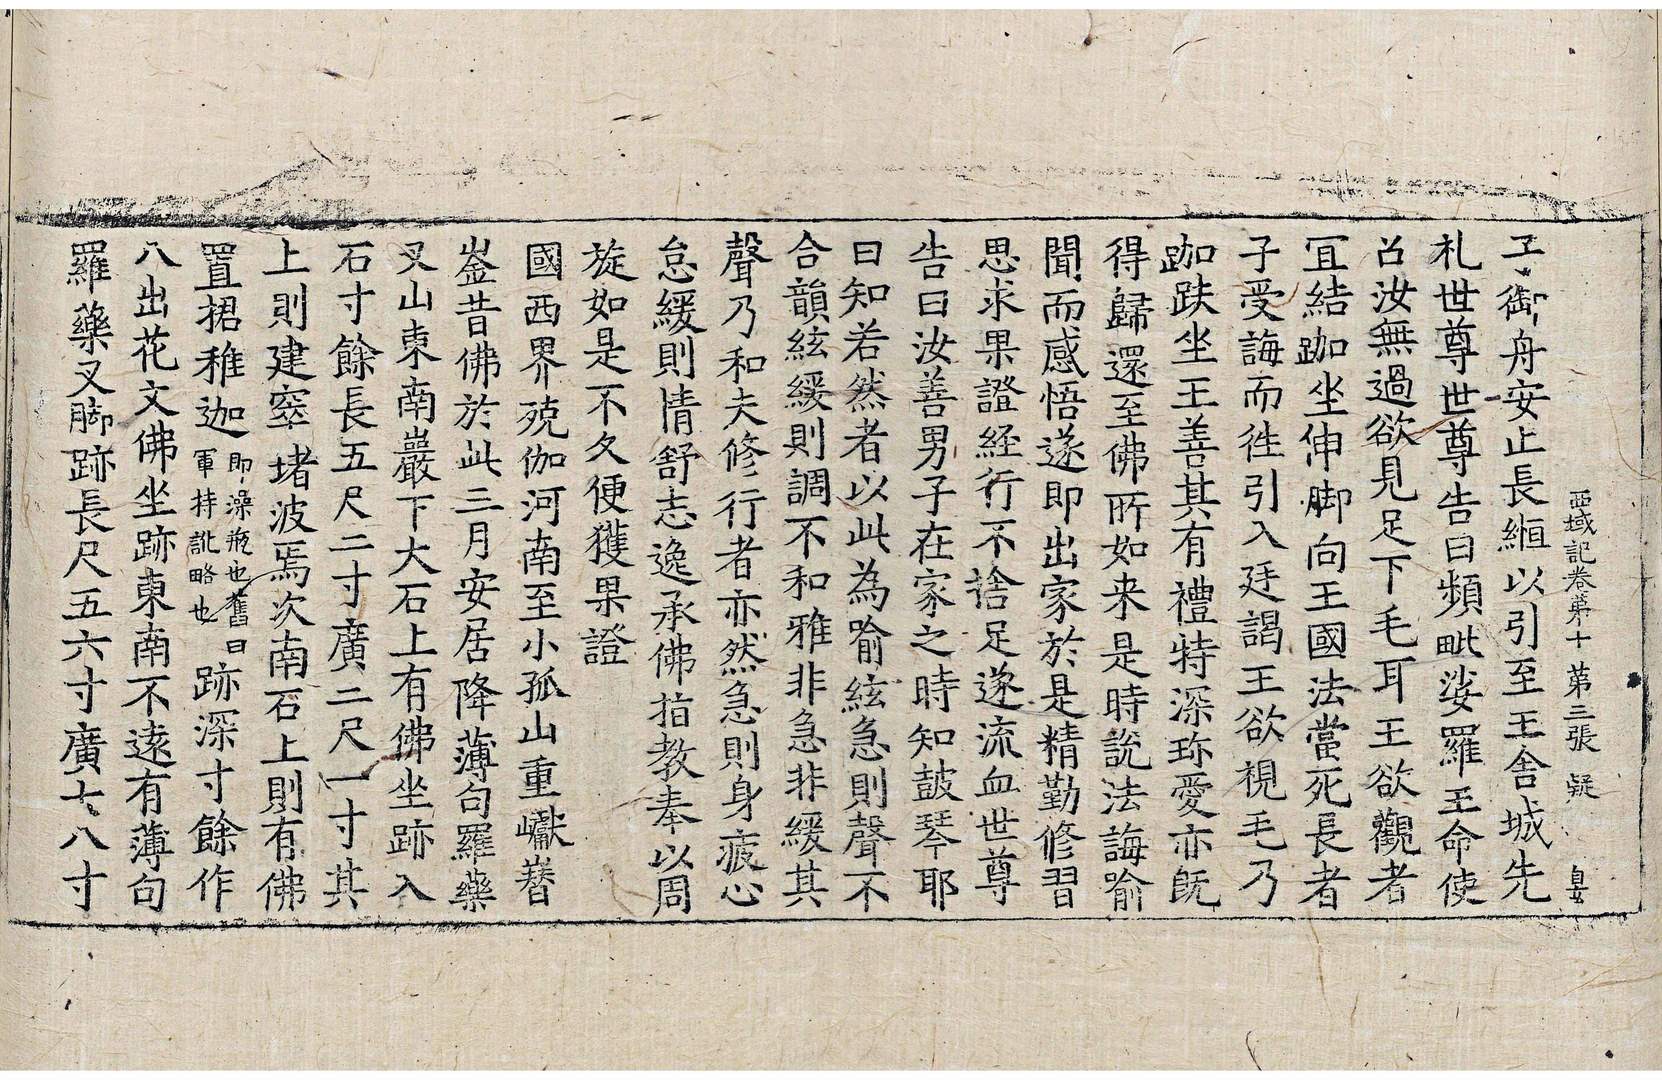 西域記卷第十 第三張 疑
子御舟安止長縆以引至王舍城先
札世尊世尊告曰頻毗娑羅王命使
召汝無過欲見足下毛耳王欲觀者
宜結跏坐伸脚向王國法當死長者
子受誨而徃引入廷謁王欲視毛乃
跏趺坐王善其有禮特深珎愛亦旣
得歸還至佛所如来是時說法誨喻
聞而感悟遂即出家於是精勤修習
思求果證経行不捨足遂流血世尊
告曰汝善男子在家之時知鼓琴耶
曰知若然者以此為喻絃急則聲不
合韻絃緩則調不和雅非急非緩其
聲乃和夫修行者亦然急則身疲心
怠緩則情舒志逸承佛指教奉以周
旋如是不久便獲果證
國西界殑伽河南至小孤山重巘㟙
崟昔佛於此三月安居降薄句羅藥
叉山東南巖下大石上有佛坐跡入
石寸餘長五尺二寸廣二尺一寸其
上則建窣堵波焉次南石上則有佛
置捃稚迦即澡瓶也舊曰軍持訛略也跡深寸餘作
八出花文佛坐跡東南不遠有薄句
羅藥叉脚跡長尺五六寸廣七八寸